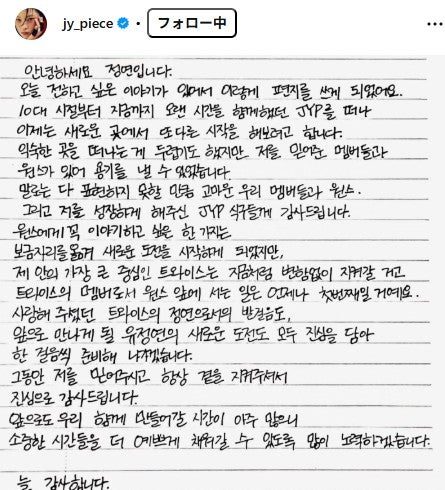 jy_piece • フォロー中
안녕하세요 정연입니다.
오늘 전하고 싶은 이야기가 있어서 이렇게 편지를 쓰게 되었어요.
10대 시절부터 지금까지 오랜 시간을 함께했던 JYP를 떠나
이제는 새로운 곳에서 또다른 시작을 해보려고 합니다.
익숙한 곳을 떠나는 게 두렵기도 했지만 저를 믿어준 멤버들과
원스가 있어 용기를 낼 수 있었습니다.
말로는 다 표현하지 못할 만큼 고마운 우리 멤버들과 원스.
그리고 저를 성장하게 해주신 JYP 식구들께 감사드립니다.
원스에게 꼭 이야기하고 싶은 한 가지는
보금자리를 옮겨 새로운 도전을 시작하게 되었지만,
제 안의 가장 큰 중심인 트와이스는 지금처럼 변함없이 지켜갈 거고
트와이스의 멤버로서 원스 앞에 서는 일은 언제나 첫번째일 거예요.
사랑해 주셨던 트와이스의 정연으로서의 발걸음도,
앞으로 만나게 될 유정연의 새로운 도전도 모두 진심을 담아
한 걸음씩 준비해 나가겠습니다.
그동안 저를 믿어주시고 항상 곁을 지켜주셔서
진심으로 감사드립니다.
앞으로도 우리 함께 만들어갈 시간이 아주 많으니
소중한 시간들을 더 예쁘게 채워갈 수 있도록 많이 노력하겠습니다.
늘 감사합니다.